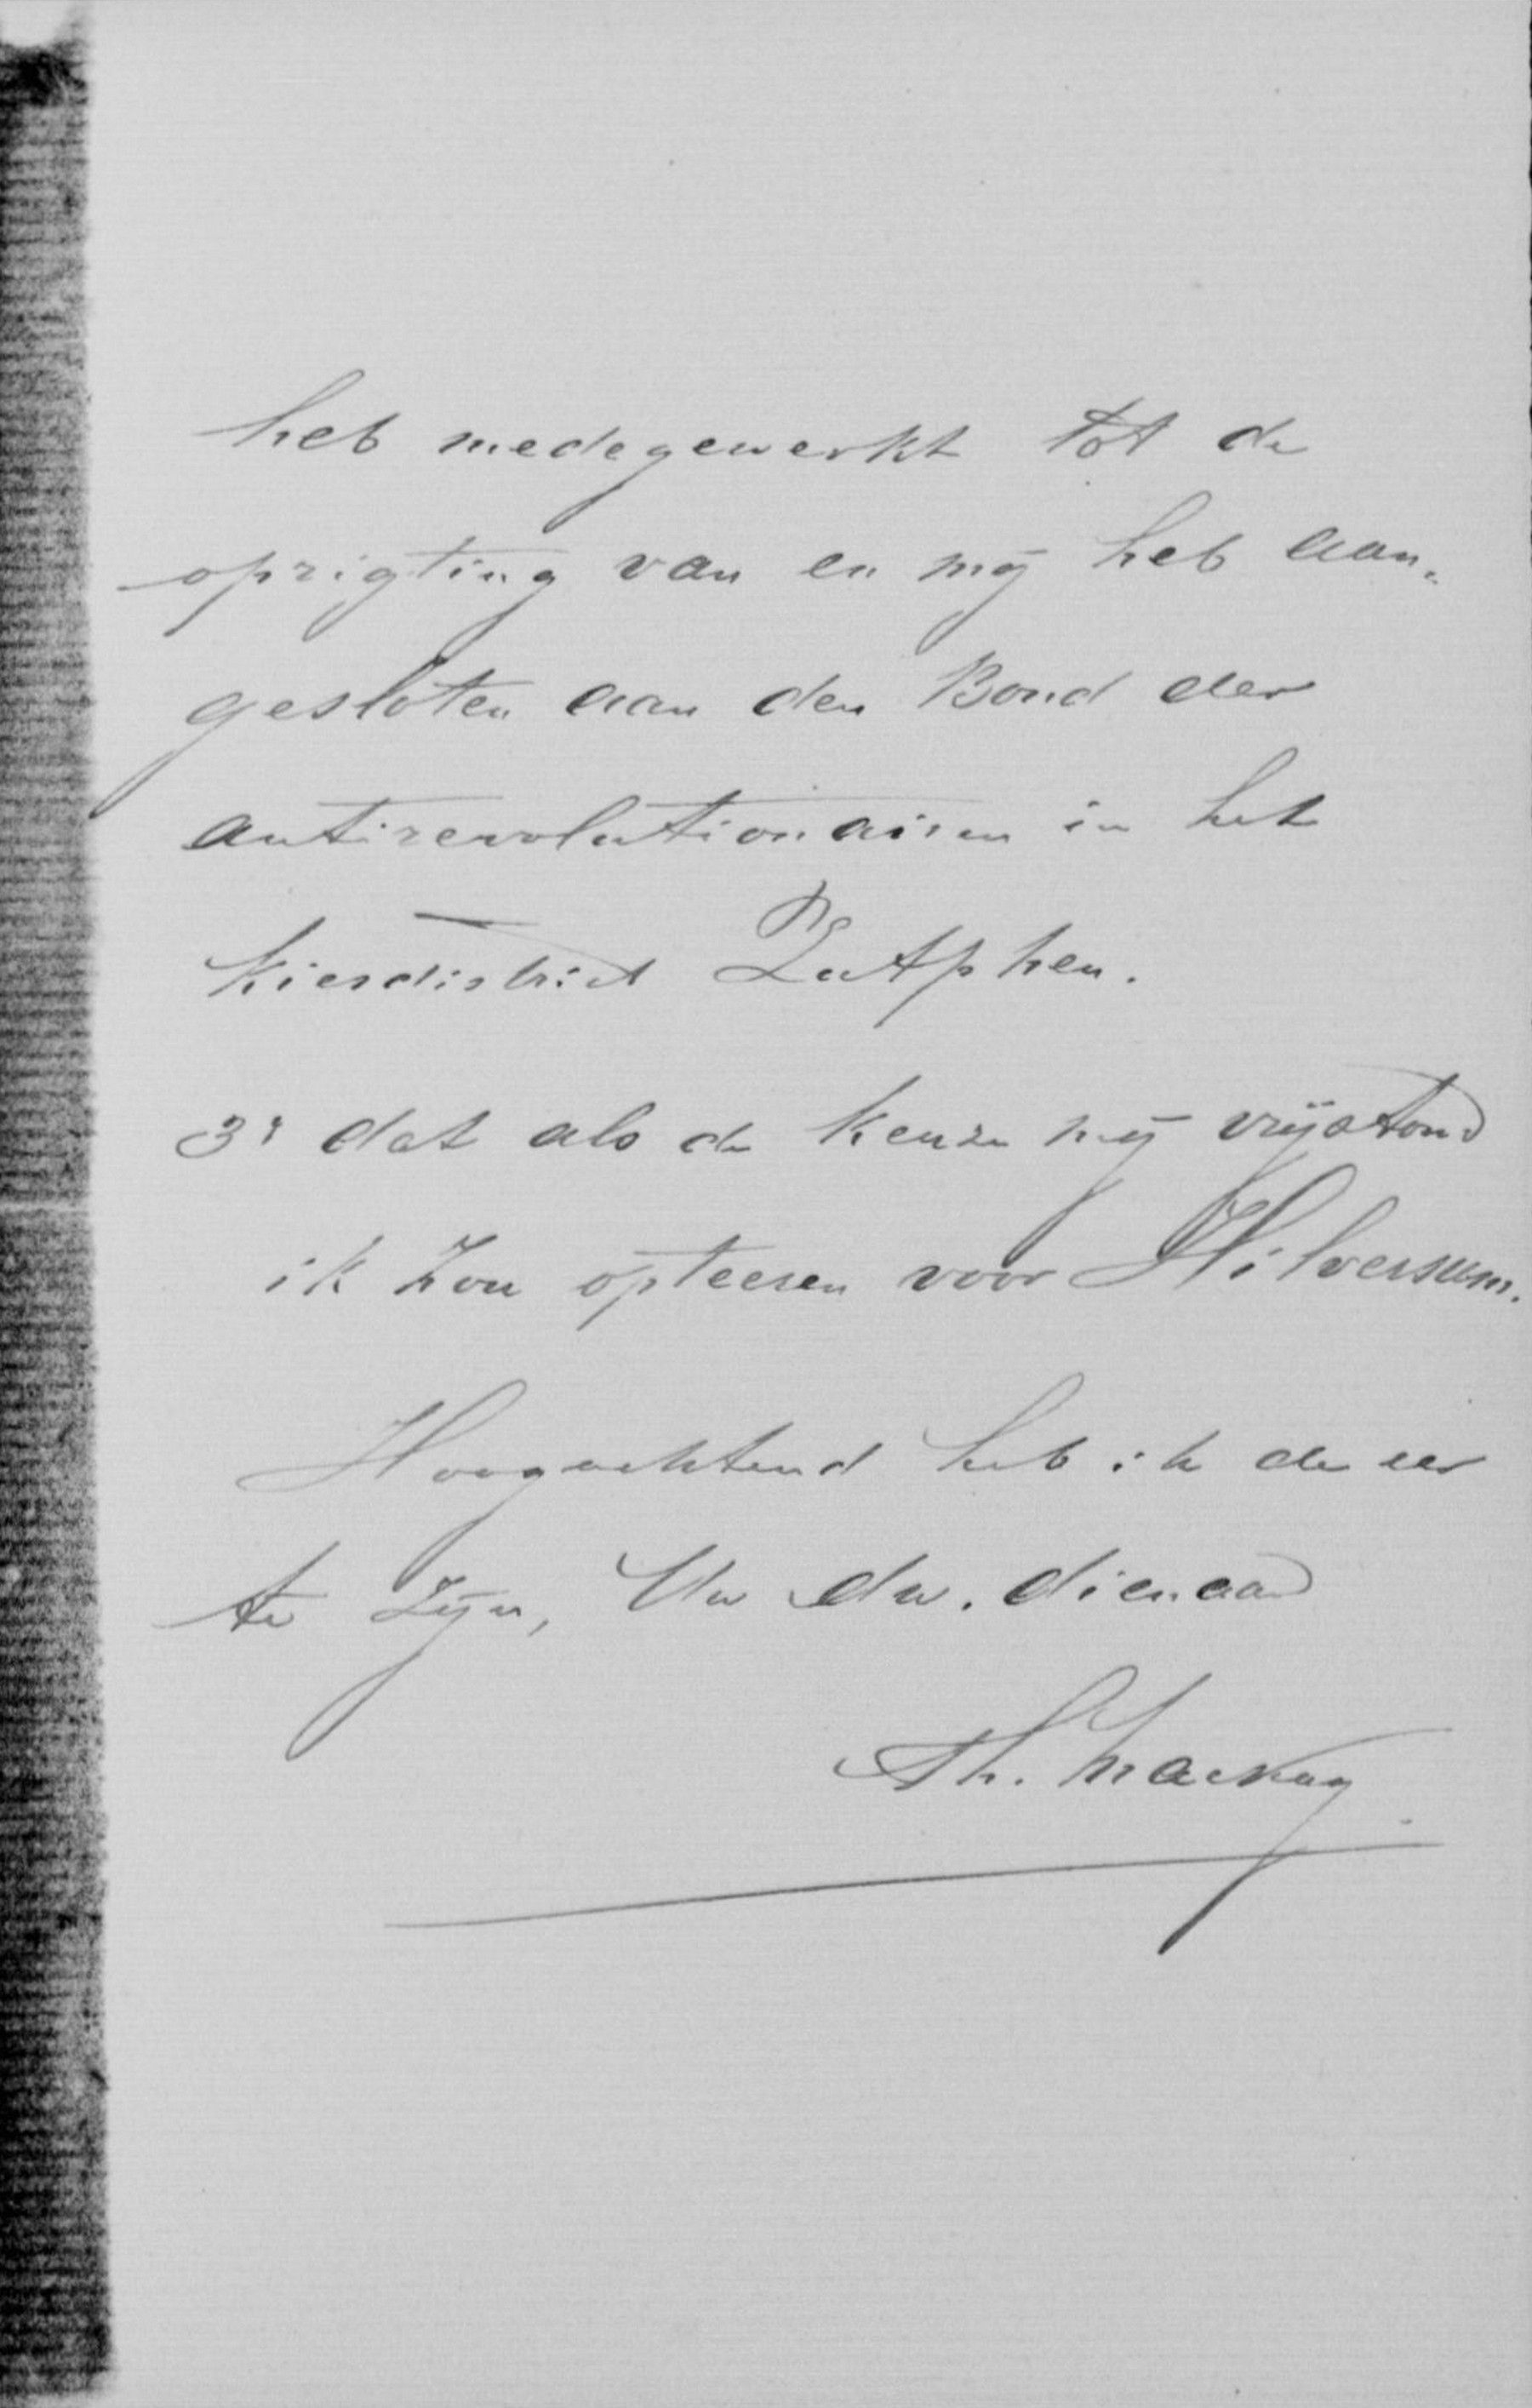 heb medegewerkt tot de
oprigting van en mij heb aan-
gesloten aan den Bond der
antirevolutionairen in het
Kiesdistrict Zutphen.
3° dat als de keuze mij vrijstond
ik zou opteeren voor Hilversum.
Hoogachtend heb ik de eer
te zijn, Uw dw. dienaar
Th. Mackay